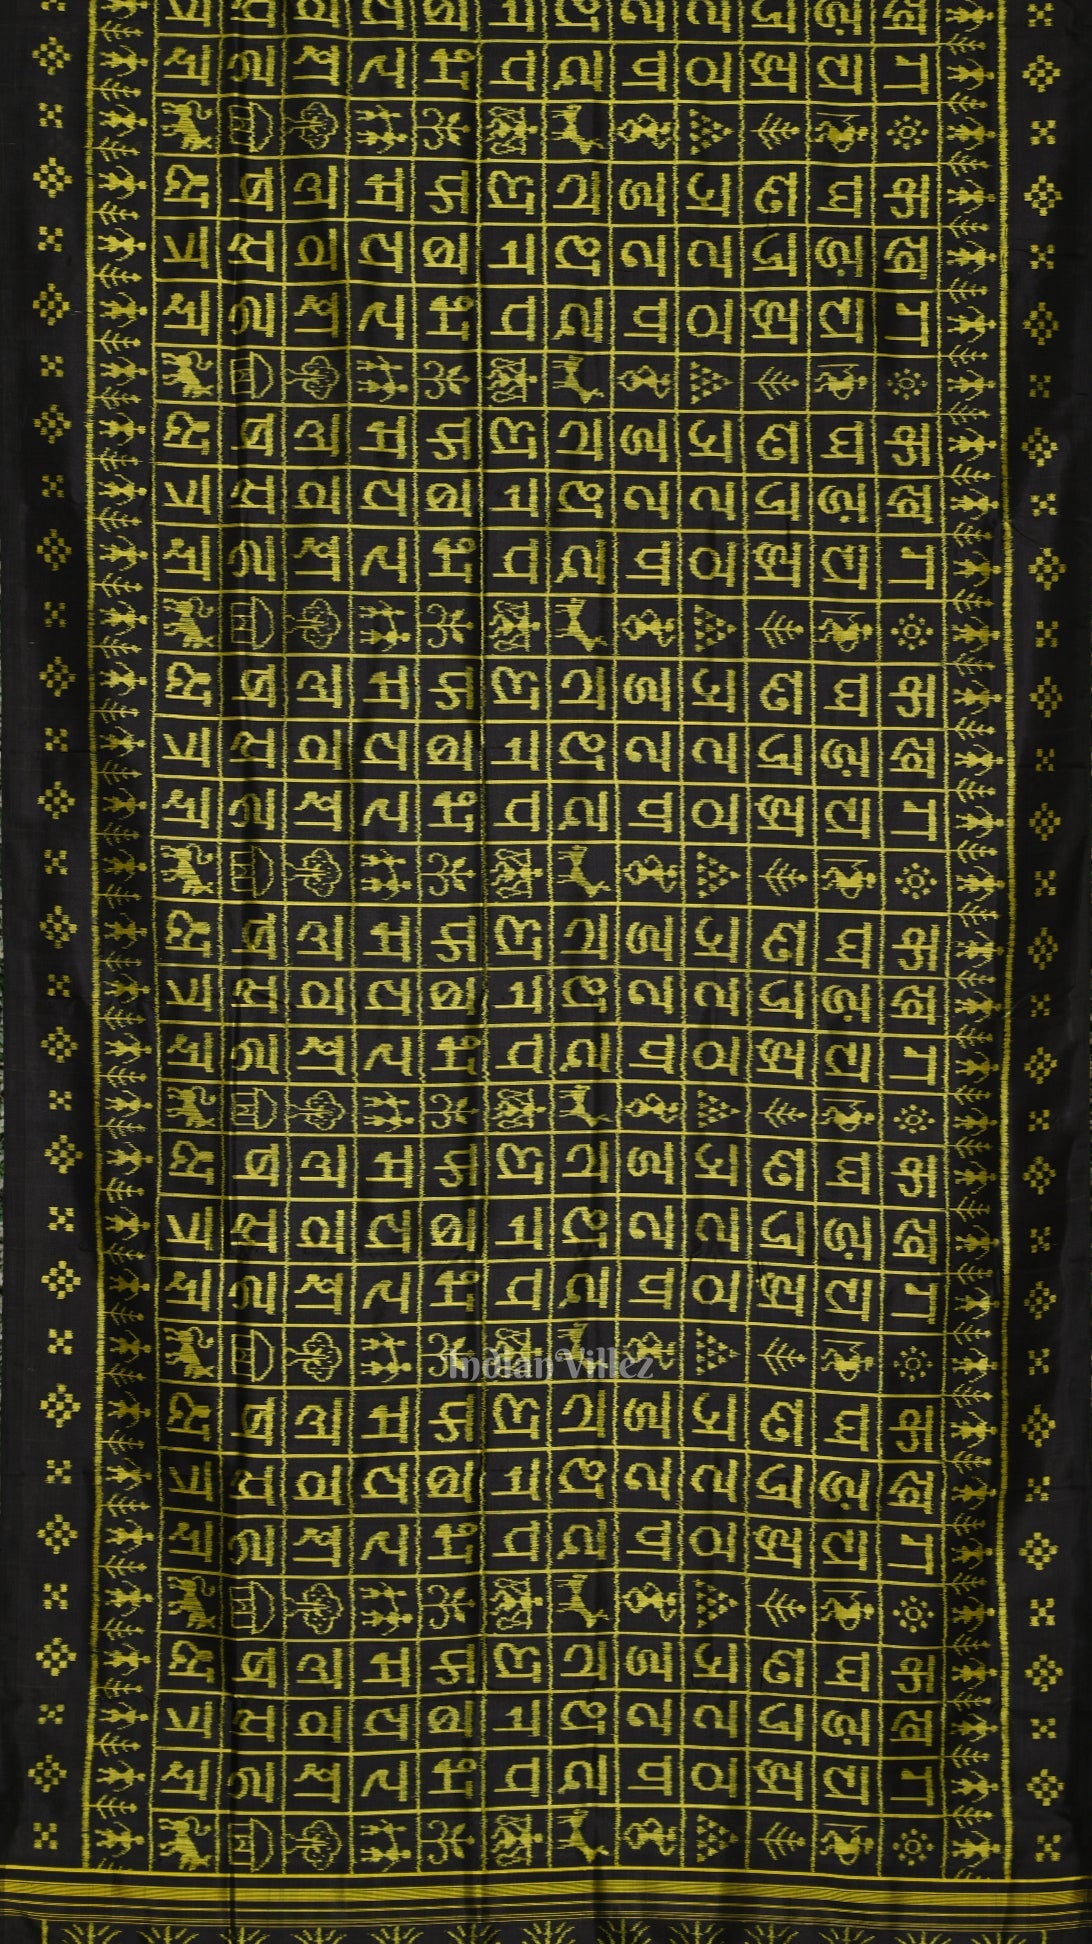 ख ग क ख ग क ख ग क ख ग क ख ग क ख ग क ख ग क ख ग
ङ च घ ङ च घ ङ च घ ङ च घ ङ च घ ङ च घ ङ च घ ङ च
ज झ छ ज झ छ ज झ छ ज झ छ ज झ छ ज झ छ ज झ छ ज झ
ट ठ ञ ट ठ ञ ट ठ ञ ट ठ ञ ट ठ ञ ट ठ ञ ट ठ ञ ट ठ
ढ ण ड ढ ण ड ढ ण ड ढ ण ड ढ ण ड ढ ण ड ढ ण ड ढ ण
थ द त थ द त थ द त थ द त थ द त थ द त थ द त थ द
न प ध न प ध न प ध न प ध न प ध न प ध न प ध न प
ब भ फ ब भ फ ब भ फ ब भ फ ब भ फ ब भ फ ब भ फ ब भ
य र म य र म य र म य र म य र म य र म य र म य र
व श ल व श ल व श ल व श ल व श ल व श ल व श ल व श
स ह ष स ह ष स ह ष स ह ष स ह ष स ह ष स ह ष स ह
त्र ज्ञ क्ष त्र ज्ञ क्ष त्र ज्ञ क्ष त्र ज्ञ क्ष त्र ज्ञ क्ष त्र ज्ञ क्ष त्र ज्ञ क्ष त्र ज्ञ
Indian Villez